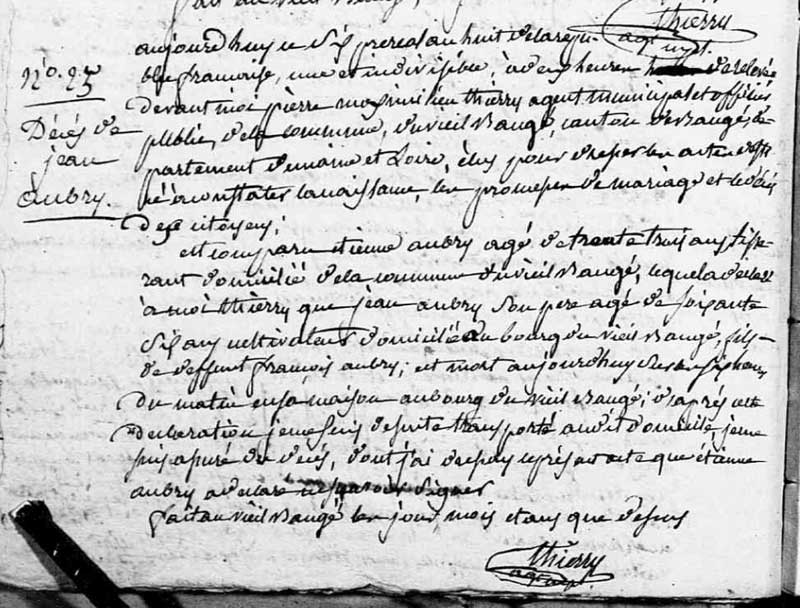 thierry
agt mpl.
aujourd'huy le six prereal an huit de la repu-
N.o 25
blique francoise, une et indivisible, à deux heures de relevée
devant moi pierre maximilien thierry agent municipal et officier
Décés de
public, de la commune, du vieil Baugé, canton de Baugé, dé-
jean
partement de maine et Loire, élus pour dresser les actes dest
aubry.
né à constater la naissance, les promesses de mariage et le décés
des citoyens;
est comparu etienne aubry agé de trente trois ans tisse-
rant domicilié de la commune du vieil Baugé, lequel a déclaré
à moi thierry que jean aubry son pere agé de soixante
six ans cultivateur domicilié au bourg du vieil Baugé, fils
de deffunt francois aubry; est mort aujourd'huy sur les six heures
du matin en sa maison au bourg du vieil Baugé; d'après cette
declaration je me suis de suite transporté au dit domicille je me
suis assuré du décés, dont j'ai dressé le présent acte que étienne
aubry a declaré ne savoir signer
fait au vieil Baugé les jour mois et ans que dessus
thierry
agt mpl.